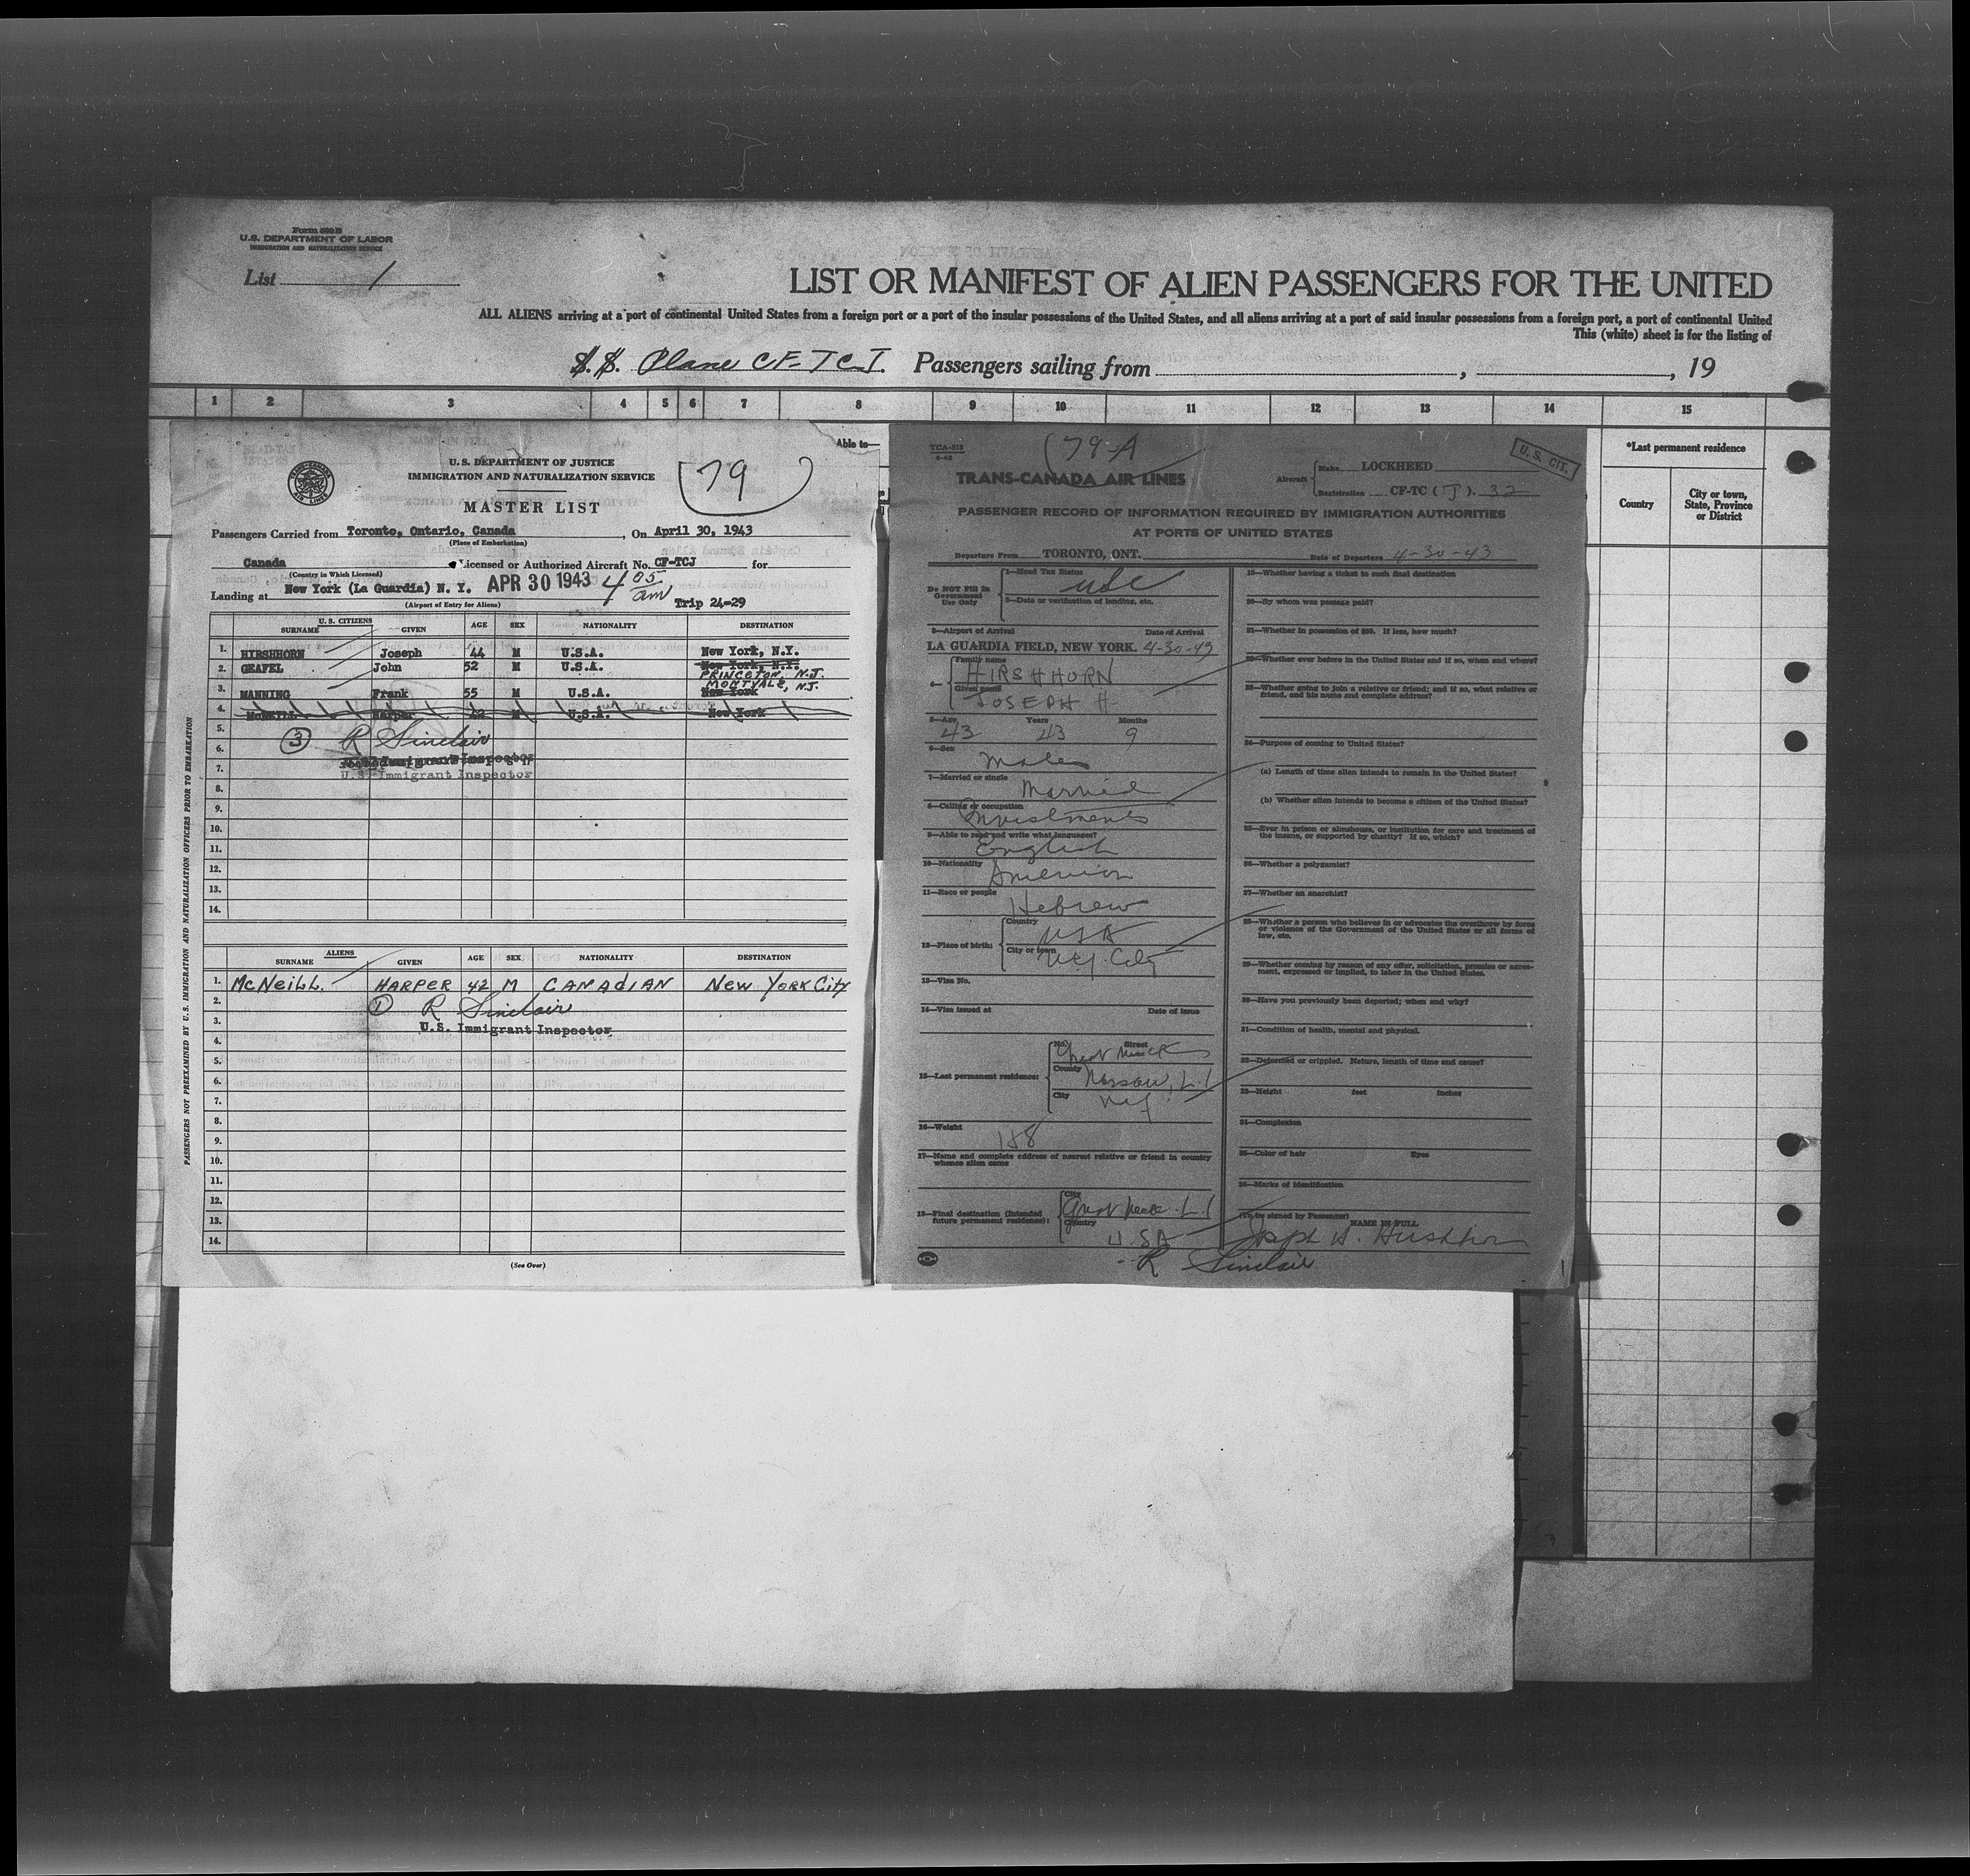 Form 500 B
U.S. DEPARTMENT OF LABOR
IMMIGRATION AND NATURALIZATION SERVICE
List 1
LIST OR MANIFEST OF ALIEN PASSENGERS FOR THE UNITED
ALL ALIENS arriving at a port of continental United States from a foreign port or a port of the insular possessions of the United States, and all aliens arriving at a port of said insular possessions from a foreign port, a port of continental United
This (white) sheet is for the listing of
S.S. Plane CF-TCJ. Passengers sailing from , , 19
1 2 3 4 5 6 7 8 9 10 11 12 13 14 15
Able to—
*Last permanent residence
Country
City or town, State, Province or District
TRANS-CANADA AIR LINES
U.S. DEPARTMENT OF JUSTICE
IMMIGRATION AND NATURALIZATION SERVICE
79
MASTER LIST
Passengers Carried from Toronto, Ontario, Canada, On April 30, 1943
(Place of Embarkation)
Canada Licensed or Authorized Aircraft No. CF-TCJ for
(Country in Which Licensed)
Landing at New York (La Guardia) N. Y. APR 30 1943 4 05 am
(Airport of Entry for Aliens) Trip 24-29
U.S. CITIZENS
SURNAME GIVEN AGE SEX NATIONALITY DESTINATION
1. HIRSHHORN Joseph 44 M U.S.A. New York, N.Y.
2. GEAFEL John 52 M U.S.A. New York, N.Y.
PRINCETON, N.J.
MONTVALE, N.J.
3. MANNING Frank 55 M U.S.A. New York
4. McNEILL Harper 42 M U.S.A. New York
5.
3 R Sinclair
6.
7. U.S. Immigrant Inspector
8.
9.
10.
11.
12.
13.
14.
ALIENS
SURNAME GIVEN AGE SEX NATIONALITY DESTINATION
1. McNeiLL. HARPER 42 M CANADIAN New YORK City
2. 1 R Sinclair
3. U.S. Immigrant Inspector
4.
5.
6.
7.
8.
9.
10.
11.
12.
13.
14.
(See Over)
PASSENGERS NOT PREEXAMINED BY U.S. IMMIGRATION AND NATURALIZATION OFFICERS PRIOR TO EMBARKATION
TCA-512
79-A
U. S. CIT.
TRANS-CANADA AIR LINES
Aircraft
Make LOCKHEED
Registration CF-TC (J). 32
PASSENGER RECORD OF INFORMATION REQUIRED BY IMMIGRATION AUTHORITIES
AT PORTS OF UNITED STATES
Departure From TORONTO, ONT. Date of Departure 4-30-43
Do NOT Fill In Government Use Only
1—Head Tax Status
usc
2—Date or verification of landing, etc.
3—Airport of Arrival Date of Arrival
LA GUARDIA FIELD, NEW YORK. 4-30-43
4— Family name
HIRSHHORN
Given name
JOSEPH H
5—Age Years Months
43 43 9
6—Sex
Male
7—Married or single
Married
8—Calling or occupation
Investments
9—Able to read and write what languages?
English
10—Nationality
American
11—Race or people
Hebrew
12—Place of birth: Country
USA
City or town
NY City
13—Visa No.
14—Visa issued at Date of Issue
15—Last permanent residence: No. Street
Great Neck
County
Nassau, L.I
City
N.Y.
16—Weight
17—Name and complete address of nearest relative or friend in country
whence alien came
18—Final destination (Intended
future permanent residence): City
Great Neck. L.I
Country
U.SA
19—Whether having a ticket to such final destination
20—By whom was passage paid?
21—Whether in possession of $50. If less, how much?
22—Whether ever before in the United States and if so, when and where?
23—Whether going to join a relative or friend; and if so, what relative or
friend, and his name and complete address?
24—Purpose of coming to United States?
(a) Length of time alien intends to remain in the United States?
(b) Whether alien intends to become a citizen of the United States?
25—Ever in prison or almshouse, or institution for care and treatment of
the insane, or supported by charity? If so, which?
26—Whether a polygamist?
27—Whether an anarchist?
28—Whether a person who believes in or advocates the overthrow by force
or violence of the Government of the United States or all forms of
law, etc.
29—Whether coming by reason of any offer, solicitation, promise or agree-
ment, expressed or implied, to labor in the United States.
30—Have you previously been deported; when and why?
31—Condition of health, mental and physical.
32—Deformed or crippled. Nature, length of time and cause?
33—Height feet inches
34—Complexion
35—Color of hair Eyes
36—Marks of identification
(To be signed by Passenger) NAME IN FULL
Joseph H. Hirshhorn
R Sinclair